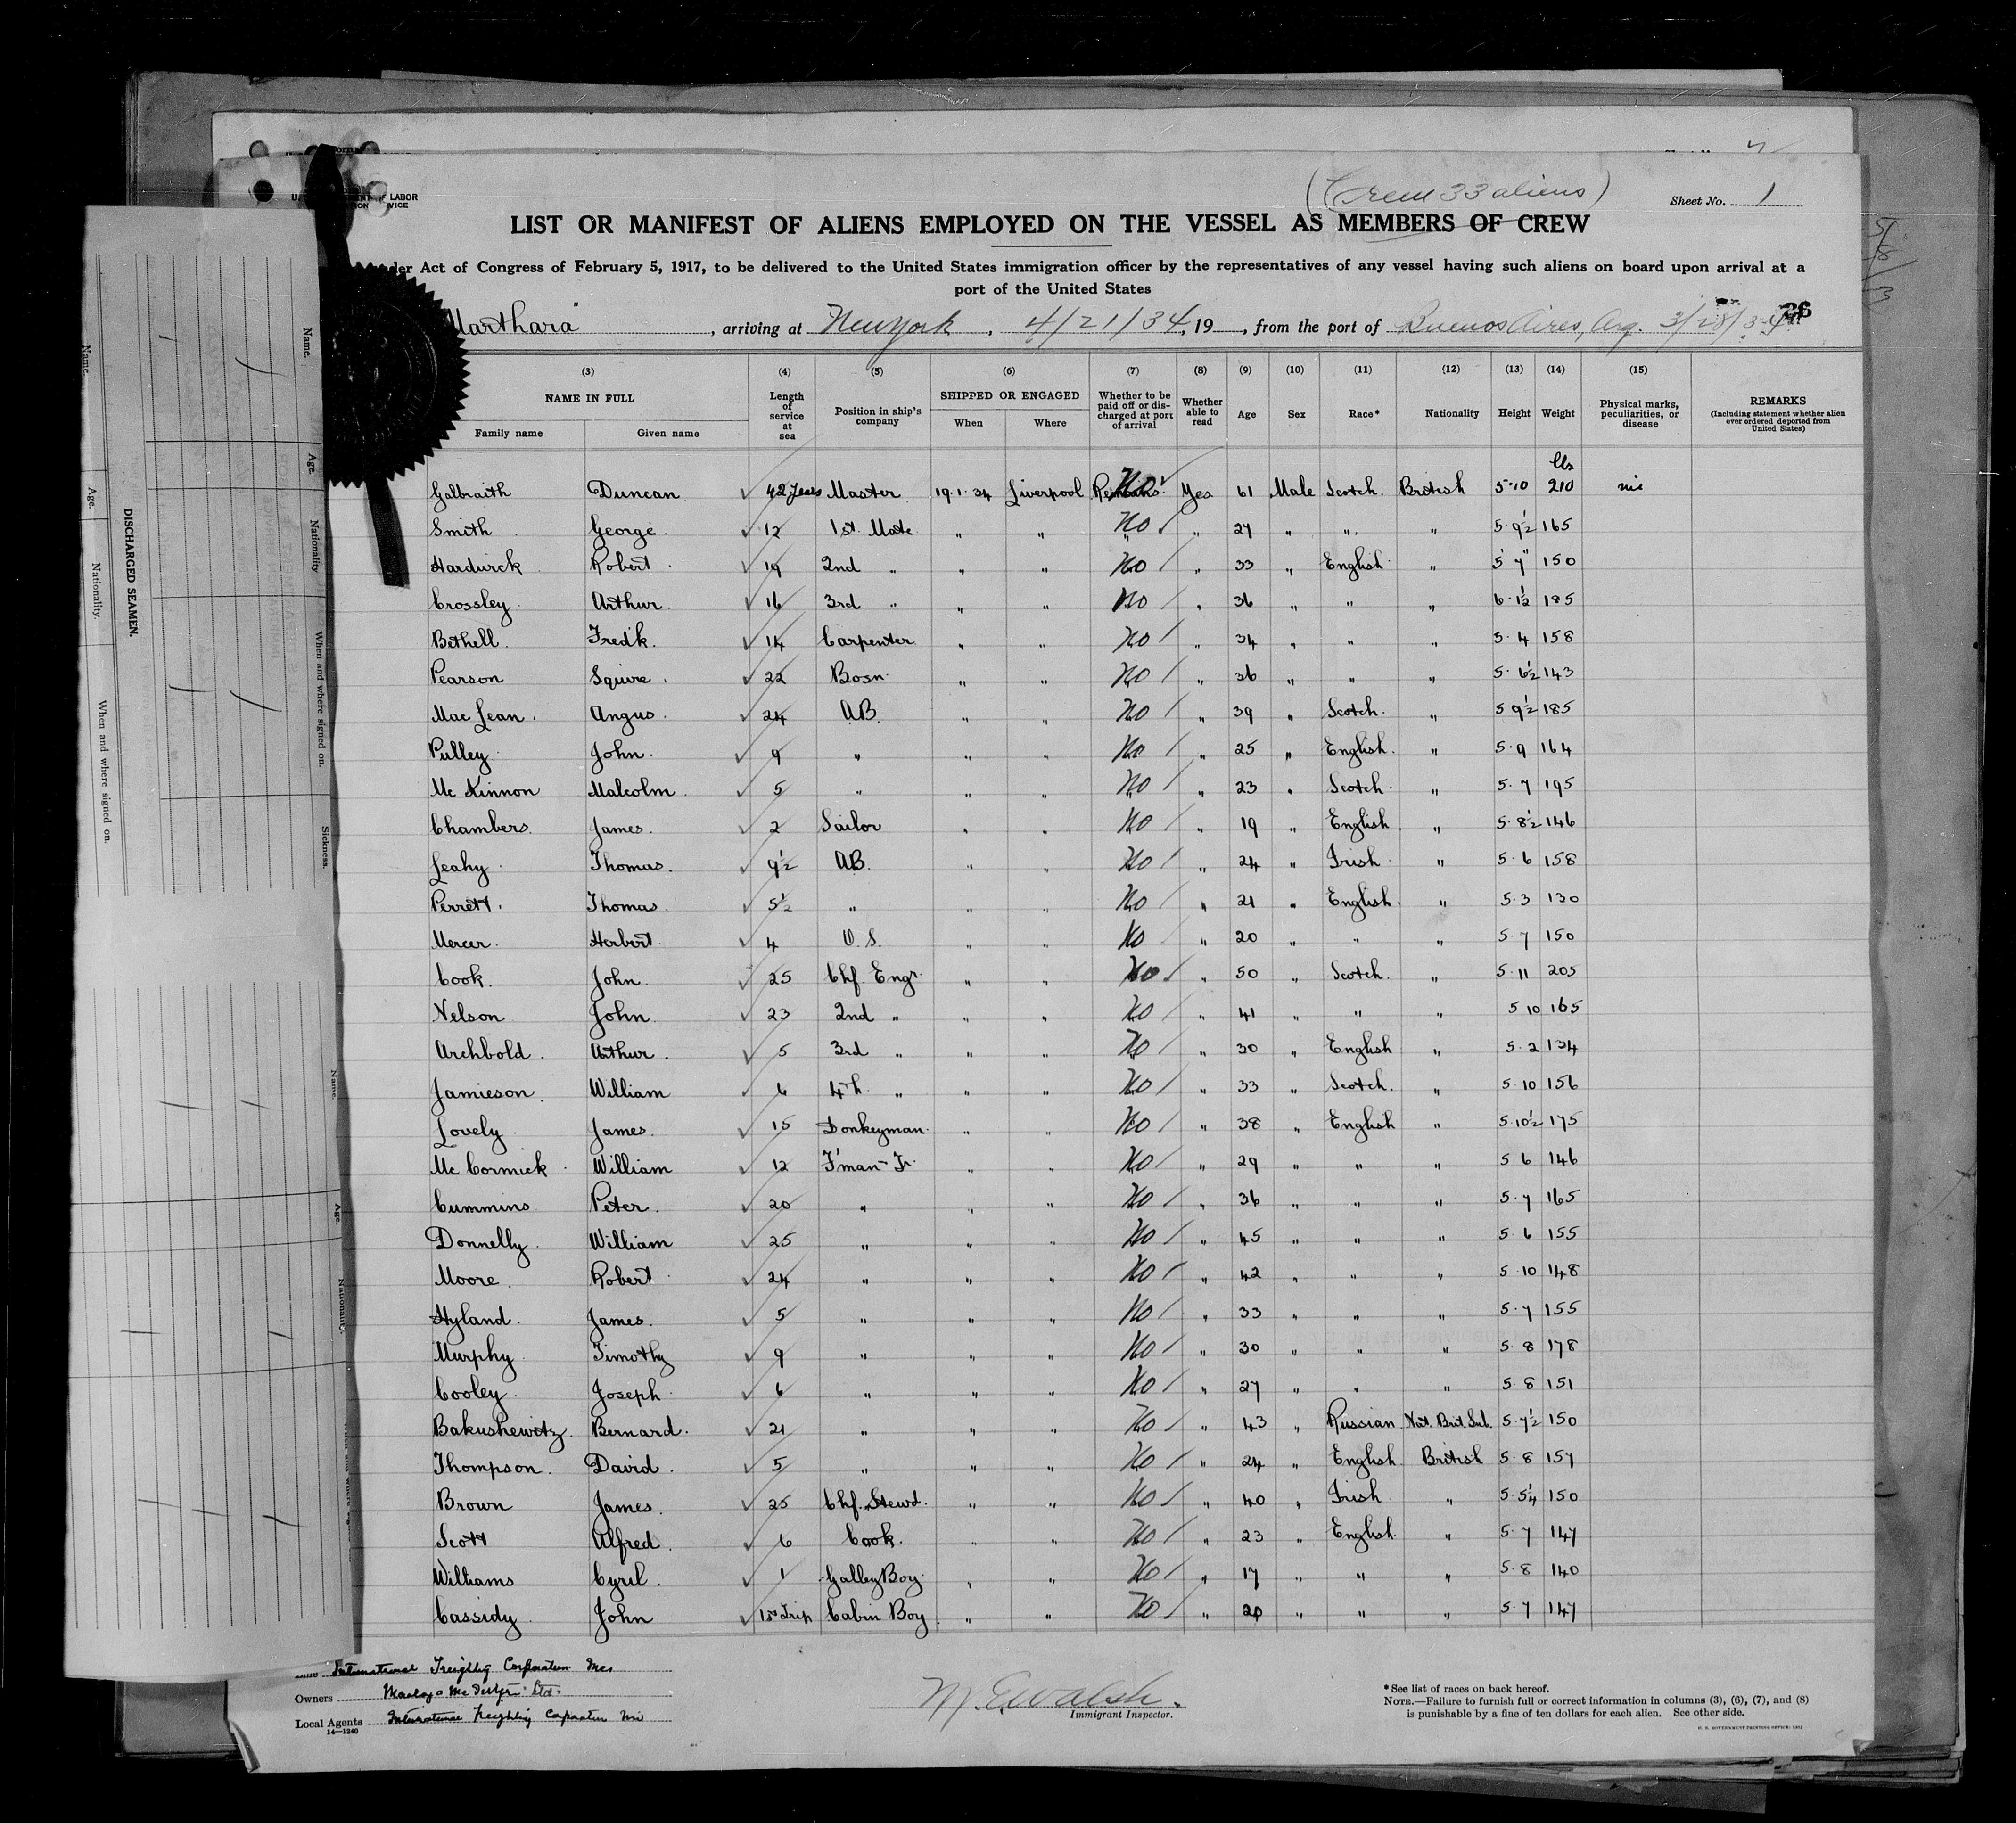 (Crew 33 aliens)
Sheet No. 1
LABOR
LIST OR MANIFEST OF ALIENS EMPLOYED ON THE VESSEL AS MEMBERS OF CREW
Act of Congress of February 5, 1917, to be delivered to the United States immigration officer by the representatives of any vessel having such aliens on board upon arrival at a
port of the United States
36
Marthara", arriving at New York, 4/21/34, 19, from the port of Buenos Aires, Arg. 3/28/34
(3) (4) (5) (6) (7) (8) (9) (10) (11) (12) (13) (14) (15)
NAME IN FULL Length of service at sea Position in ship's company SHIPPED OR ENGAGED Whether to be paid off or discharged at port of arrival Whether able to read Age Sex Race* Nationality Height Weight Physical marks, peculiarities, or disease REMARKS (Including statement whether alien ever ordered deported from United States)
Family name Given name When Where
lbs
Galbraith Duncan. 42 years Master 19.1.34 Liverpool No Yes 61 Male Scotch. British 5·10 210 nil
Smith George. 12 1st Mate „ „ No „ 27 „ „ „ 5·9½ 165
Hardwick Robert 19 2nd „ „ „ No „ 33 „ English „ 5'7" 150
Crossley Arthur. 16 3rd „ „ „ No „ 36 „ „ „ 6·1½ 185
Bethell. Fredk. 14 Carpenter „ „ No „ 34 „ „ „ 5·4 158
Pearson Squire. 22 Bosn „ „ No „ 36 „ „ „ 5·6½ 143
Mac Lean. Angus. 24 AB. „ „ No „ 39 „ Scotch. „ 5 9½ 185
Pulley John. 9 „ „ „ No „ 25 „ English. „ 5·9 164
Mc Kinnon Malcolm. 5 „ „ „ No „ 23 „ Scotch. „ 5·7 195
Chambers. James. 2 Sailor „ „ No „ 19 „ English „ 5·8½ 146
Leahy. Thomas. 9½ AB. „ „ No „ 24 „ Irish „ 5·6 158
Perrett. Thomas. 5½ „ „ „ No „ 21 „ English. „ 5·3 130
Mercer. Herbert. 4 O.S. „ „ No „ 20 „ „ „ 5·7 150
Cook. John. 25 Chf. Engr. „ „ No „ 50 „ Scotch. „ 5·11 205
Nelson John. 23 2nd „ „ „ No „ 41 „ „ „ 5 10 165
Archbold. Arthur. 5 3rd „ „ „ No „ 30 „ English „ 5·2 134
Jamieson. William 6 4th „ „ „ No „ 33 „ Scotch. „ 5·10 156
Lovely James. 15 Donkeyman. „ „ No „ 38 „ English „ 5·10½ 175
Mc Cormick William 12 F'man-Tr. „ „ No „ 29 „ „ „ 5 6 146
Cummins Peter. 20 „ „ „ No „ 36 „ „ „ 5·7 165
Donnelly William 25 „ „ „ No „ 45 „ „ „ 5·6 155
Moore. Robert 24 „ „ „ No „ 42 „ „ „ 5·10 148
Hyland. James. 5 „ „ „ No „ 33 „ „ „ 5·7 155
Murphy Timothy 9 „ „ „ No „ 30 „ „ „ 5·8 178
Cooley. Joseph. 6 „ „ „ No „ 27 „ „ „ 5·8 151
Bakushewitz. Bernard. 21 „ „ „ No „ 43 „ Russian Nat. Brit. Sub. 5·7½ 150
Thompson. David. 5 „ „ „ No „ 24 „ English British 5·8 157
Brown James. 25 Chf. Stewd. „ „ No „ 40 „ Irish „ 5·5¼ 150
Scott Alfred. 6 Cook. „ „ No „ 23 „ English. „ 5·7 147
Williams Cyril. 1 Galley Boy „ „ No „ 17 „ „ „ 5·8 140
Cassidy. John 1st Trip Cabin Boy „ „ No „ 20 „ „ „ 5·7 147
International Freighting Corporation Inc
Owners
Local Agents International Freighting Corporation Inc
14—1240
M. E. Walsh.
Immigrant Inspector.
*See list of races on back hereof.
NOTE.—Failure to furnish full or correct information in columns (3), (6), (7), and (8)
is punishable by a fine of ten dollars for each alien. See other side.
DISCHARGED SEAMEN.
Name. Age. Nationality. When and where signed on.
Name. Age. Nationality When and where signed on. Sickness.
Name. Age. Nationality.